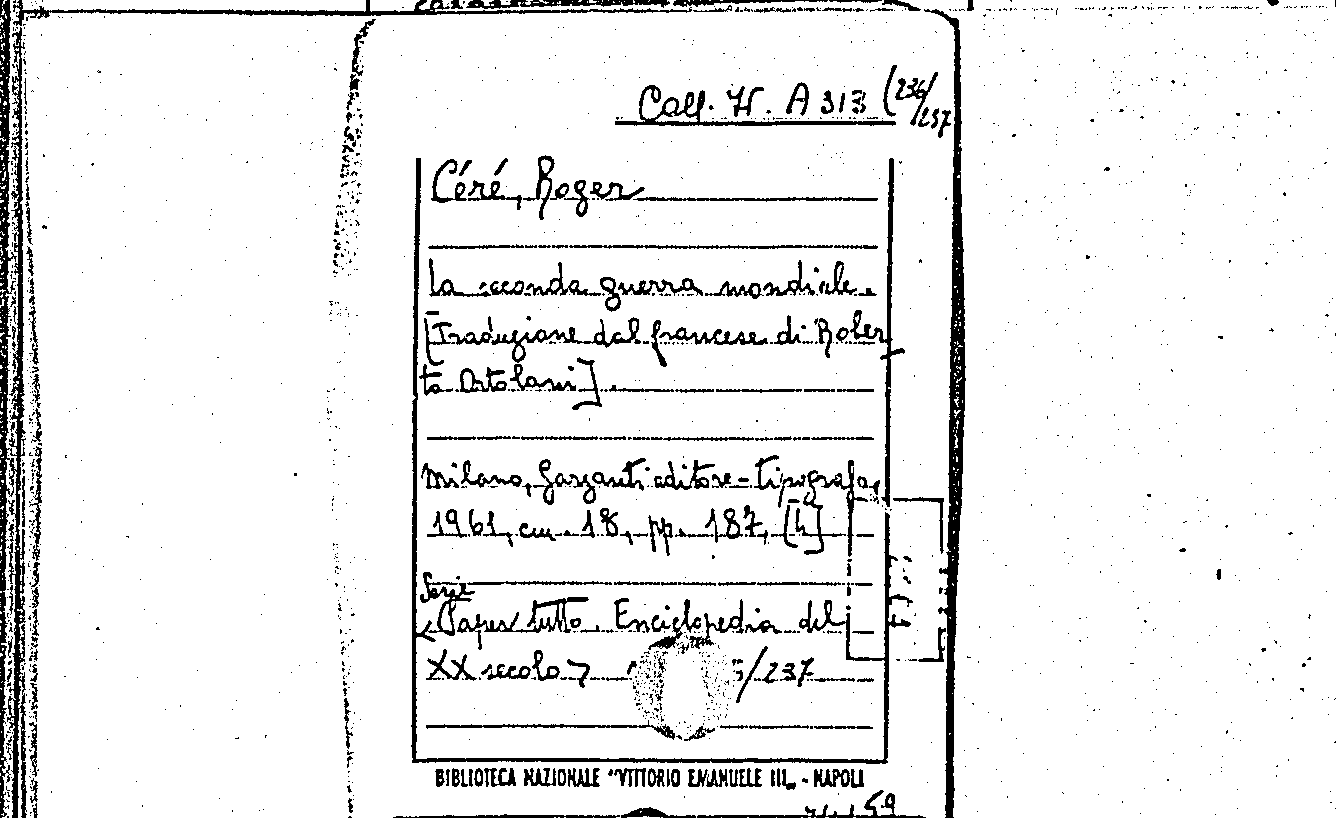 Coll. H. A 313 (236/237
Céré, Roger
La seconda guerra mondiale.
[Traduzione dal francese di Rober
to Ortolani].
Milano, Garzanti editore-tipografo,
1961, cm. 18, pp. 187, [4]
Serie
<Saper tutto. Enciclopedia del
XX secolo> /237
BIBLIOTECA NAZIONALE "VITTORIO EMANUELE III„ - NAPOLI